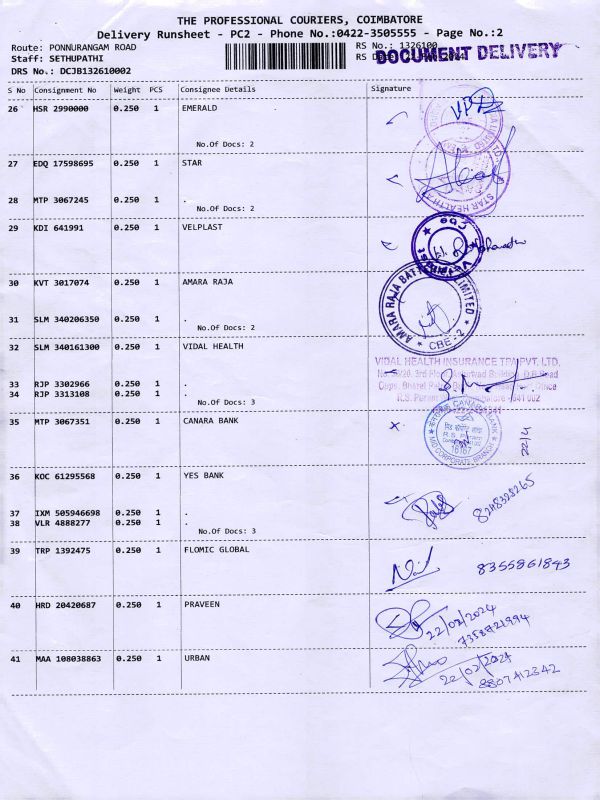 THE PROFESSIONAL COURIERS, COIMBATORE
Delivery Runsheet - PC2 - Phone No.:0422-3505555 - Page No.:2
Route: PONNURANGAM ROAD
RS No.: 1326100
Staff: SETHUPATHI
RS
DOCUMENT DELIVERY
DRS No.: DCJB132610002
S No Consignment No Weight PCS Consignee Details Signature
26 HSR 2990000 0.250 1 EMERALD
No.Of Docs: 2
27 EDQ 17598695 0.250 1 STAR
STAR HEALTH
28 MTP 3067245 0.250 1 .
No.Of Docs: 2
29 KDI 641991 0.250 1 VELPLAST
Cbe
30 KVT 3017074 0.250 1 AMARA RAJA
AMARA RAJA BATT LIMITED
CBE - 2
31 SLM 340206350 0.250 1 .
No.Of Docs: 2
32 SLM 340161300 0.250 1 VIDAL HEALTH
VIDAL HEALTH INSURANCE TPA PVT. LTD.
33 RJP 3302966 0.250 1 .
34 RJP 3313108 0.250 1 .
No.Of Docs: 3
35 MTP 3067351 0.250 1 CANARA BANK
CANARA BANK
16187
MID CORPORATE BRANCH
22/4
36 KOC 61295568 0.250 1 YES BANK
37 IXM 505946698 0.250 1 .
38 VLR 4888277 0.250 1 .
No.Of Docs: 3
39 TRP 1392475 0.250 1 FLOMIC GLOBAL
8355861843
40 HRD 20420687 0.250 1 PRAVEEN
22/02/2024
7358721994
41 MAA 108038863 0.250 1 URBAN
22/02/2024
8807412342